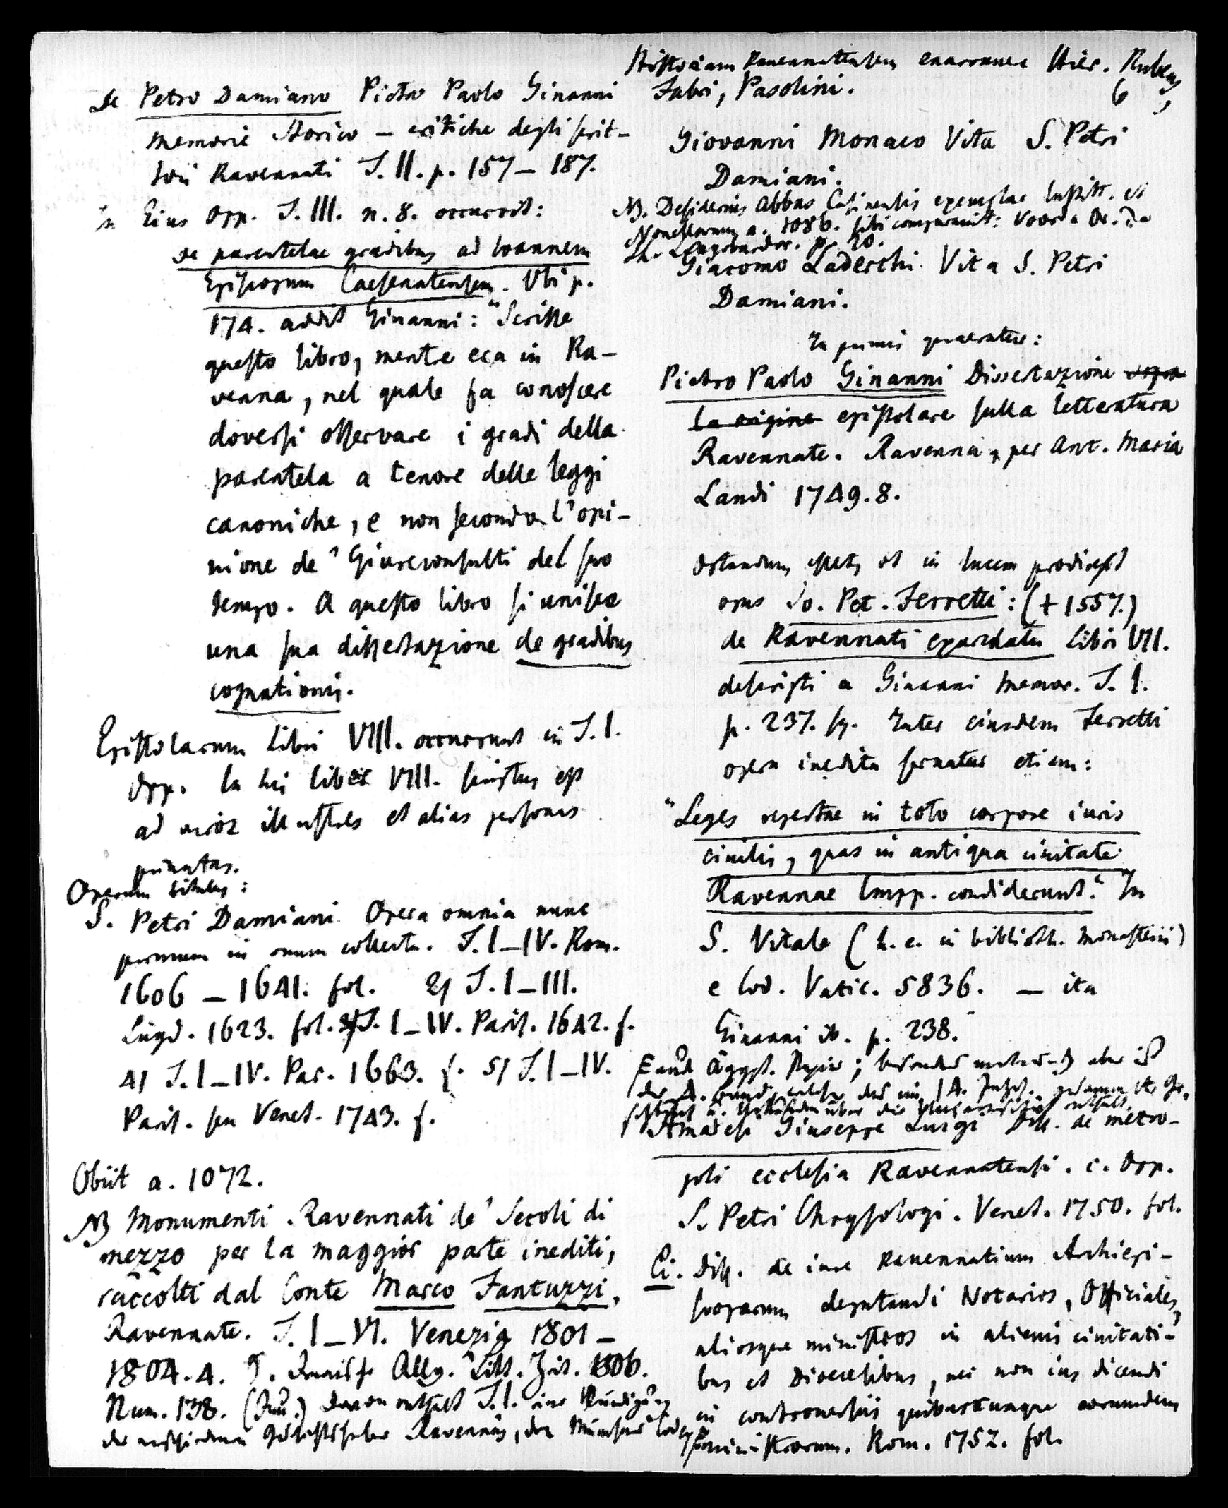 De Petro Damiano Pietro Paolo Ginanni
memorie storico – critiche degli scrit-
tori Ravennati T. II. p. 157 – 187.
in Eius Opp. T. III. n. 8. occurrit:
de parentelae gradibus ad Ioannem
Episcopum Caesenatensem. Ubi p.
174. addit Ginanni: "Scrisse
questo libro, mentre era in Ra-
venna, nel quale fa conoscere
doversi osservare i gradi della
parentela a tenore delle leggi
canoniche, e non secondo l'opi-
nione de' Giureconsulti del suo
tempo. A questo libro si unisce
una sua dissertazione de gradibus
cognationis.
Epistolarum Libri VIII. occurrunt in T. I.
Opp. In his liber VIII. scriptus est
ad viros illustres et alias personas
privatas.
Operum titulus:
S. Petri Damiani Opera omnia nunc
primum in unum collecta. T. I – IV. Rom.
1606 – 1641. fol. 2) T. I – III.
Lugd. 1623. fol. 3) T. I – IV. Paris. 1642. f.
4) T. I – IV. Par. 1663. f. 5) T. I – IV.
Paris. seu Venet. 1743. f.
Obiit a. 1072.
NB Monumenti Ravennati de' Secoli di
mezzo per la maggior parte inediti,
raccolti dal Conte Marco Fantuzzi,
Ravennate. T. I – VI. Venezia 1801 –
1804. 4. Allg. Litt. Zeit. 1806.
Num. 138. (Jun.) Davon enthält T. I. eine
der verschiedenen Geschichtschreiber Ravenna's, der
Historiam Ravennatensem enarravere Hier. Rubeus,
Fabri, Pasolini. 6
Giovanni Monaco Vita S. Petri
Damiani.
NB. Desiderius Abbas Casinensis exemplar Institt. et
Novellarum a. 1086. sibi comparavit:
Langobardor. p. 20.
Giacomo Laderchi Vita S. Petri
Damiani.
In primis quaeratur:
Pietro Paolo Ginanni Dissertazione sopra
la origine epistolare sulla letteratura
Ravennate. Ravenna, per Ant. Maria
Landi 1749. 8.
Optandum esset, ut in lucem prodiret
opus Io. Pet. Ferretti: († 1557.)
de Ravennati exarchatu Libri VII.
descripti a Ginanni memor. T. I.
p. 237. sq. Inter eiusdem Ferretti
opera inedita servatur etiam:
"Leges repertae in toto corpore iuris
civilis, quas in antiqua civitate
Ravennae Impp. condiderunt." In
S. Vitale (h. e. in biblioth. monasterii)
e Cod. Vatic. 5836. – ita
Ginanni ib. p. 238.
Amadesi Giuseppe Luigi Diss. de metro-
poli ecclesia Ravennatensi. c. Opp.
S. Petri Chrysologi. Venet. 1750. fol.
Ei. Diss. de iure Ravennatium Archiepi-
scoporum deputandi Notarios, Officiales,
aliosque ministros in alienis civitati-
bus et Dioecesibus, nec non ius dicendi
in controversiis quibuscunque eorumdem
ministrorum. Rom. 1752. fol.